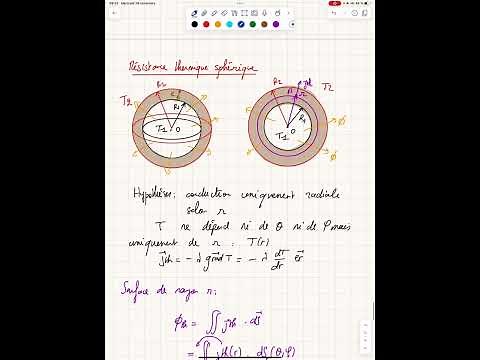 Résistance thermique sphérique
R2
R1
T2
T1
O
R2
M
r
jth
T2
R1
O
T1
ϕ
ϕ
Hypothèses: conduction uniquement radiale
selon r
T ne dépend ni de θ ni de φ mais
uniquement de r : T(r)
jth = - λ grad T = - λ dT/dr er
Surface de rayon r:
ϕth = ∬ jth . dS
= ∬ jth(r) . dS(θ,φ)